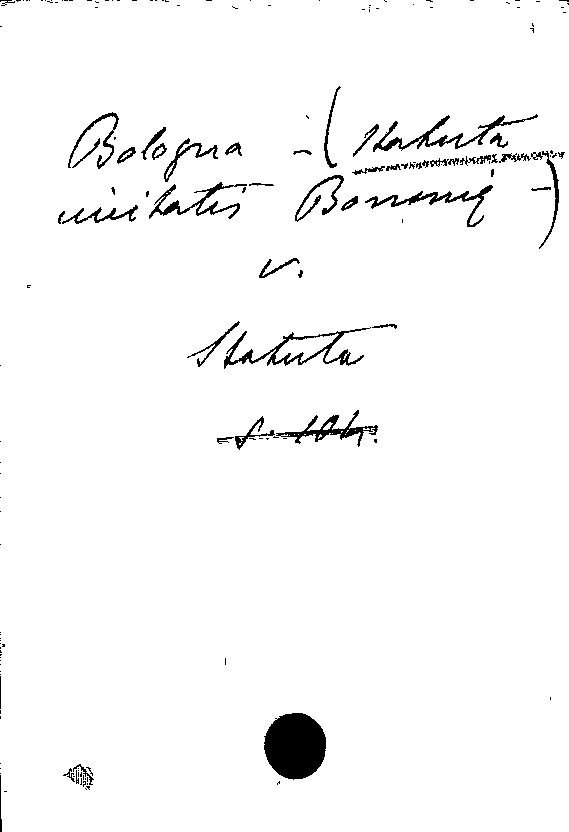 Bologna - (Statuta
civitatis Bononię -)
v.
Statuta